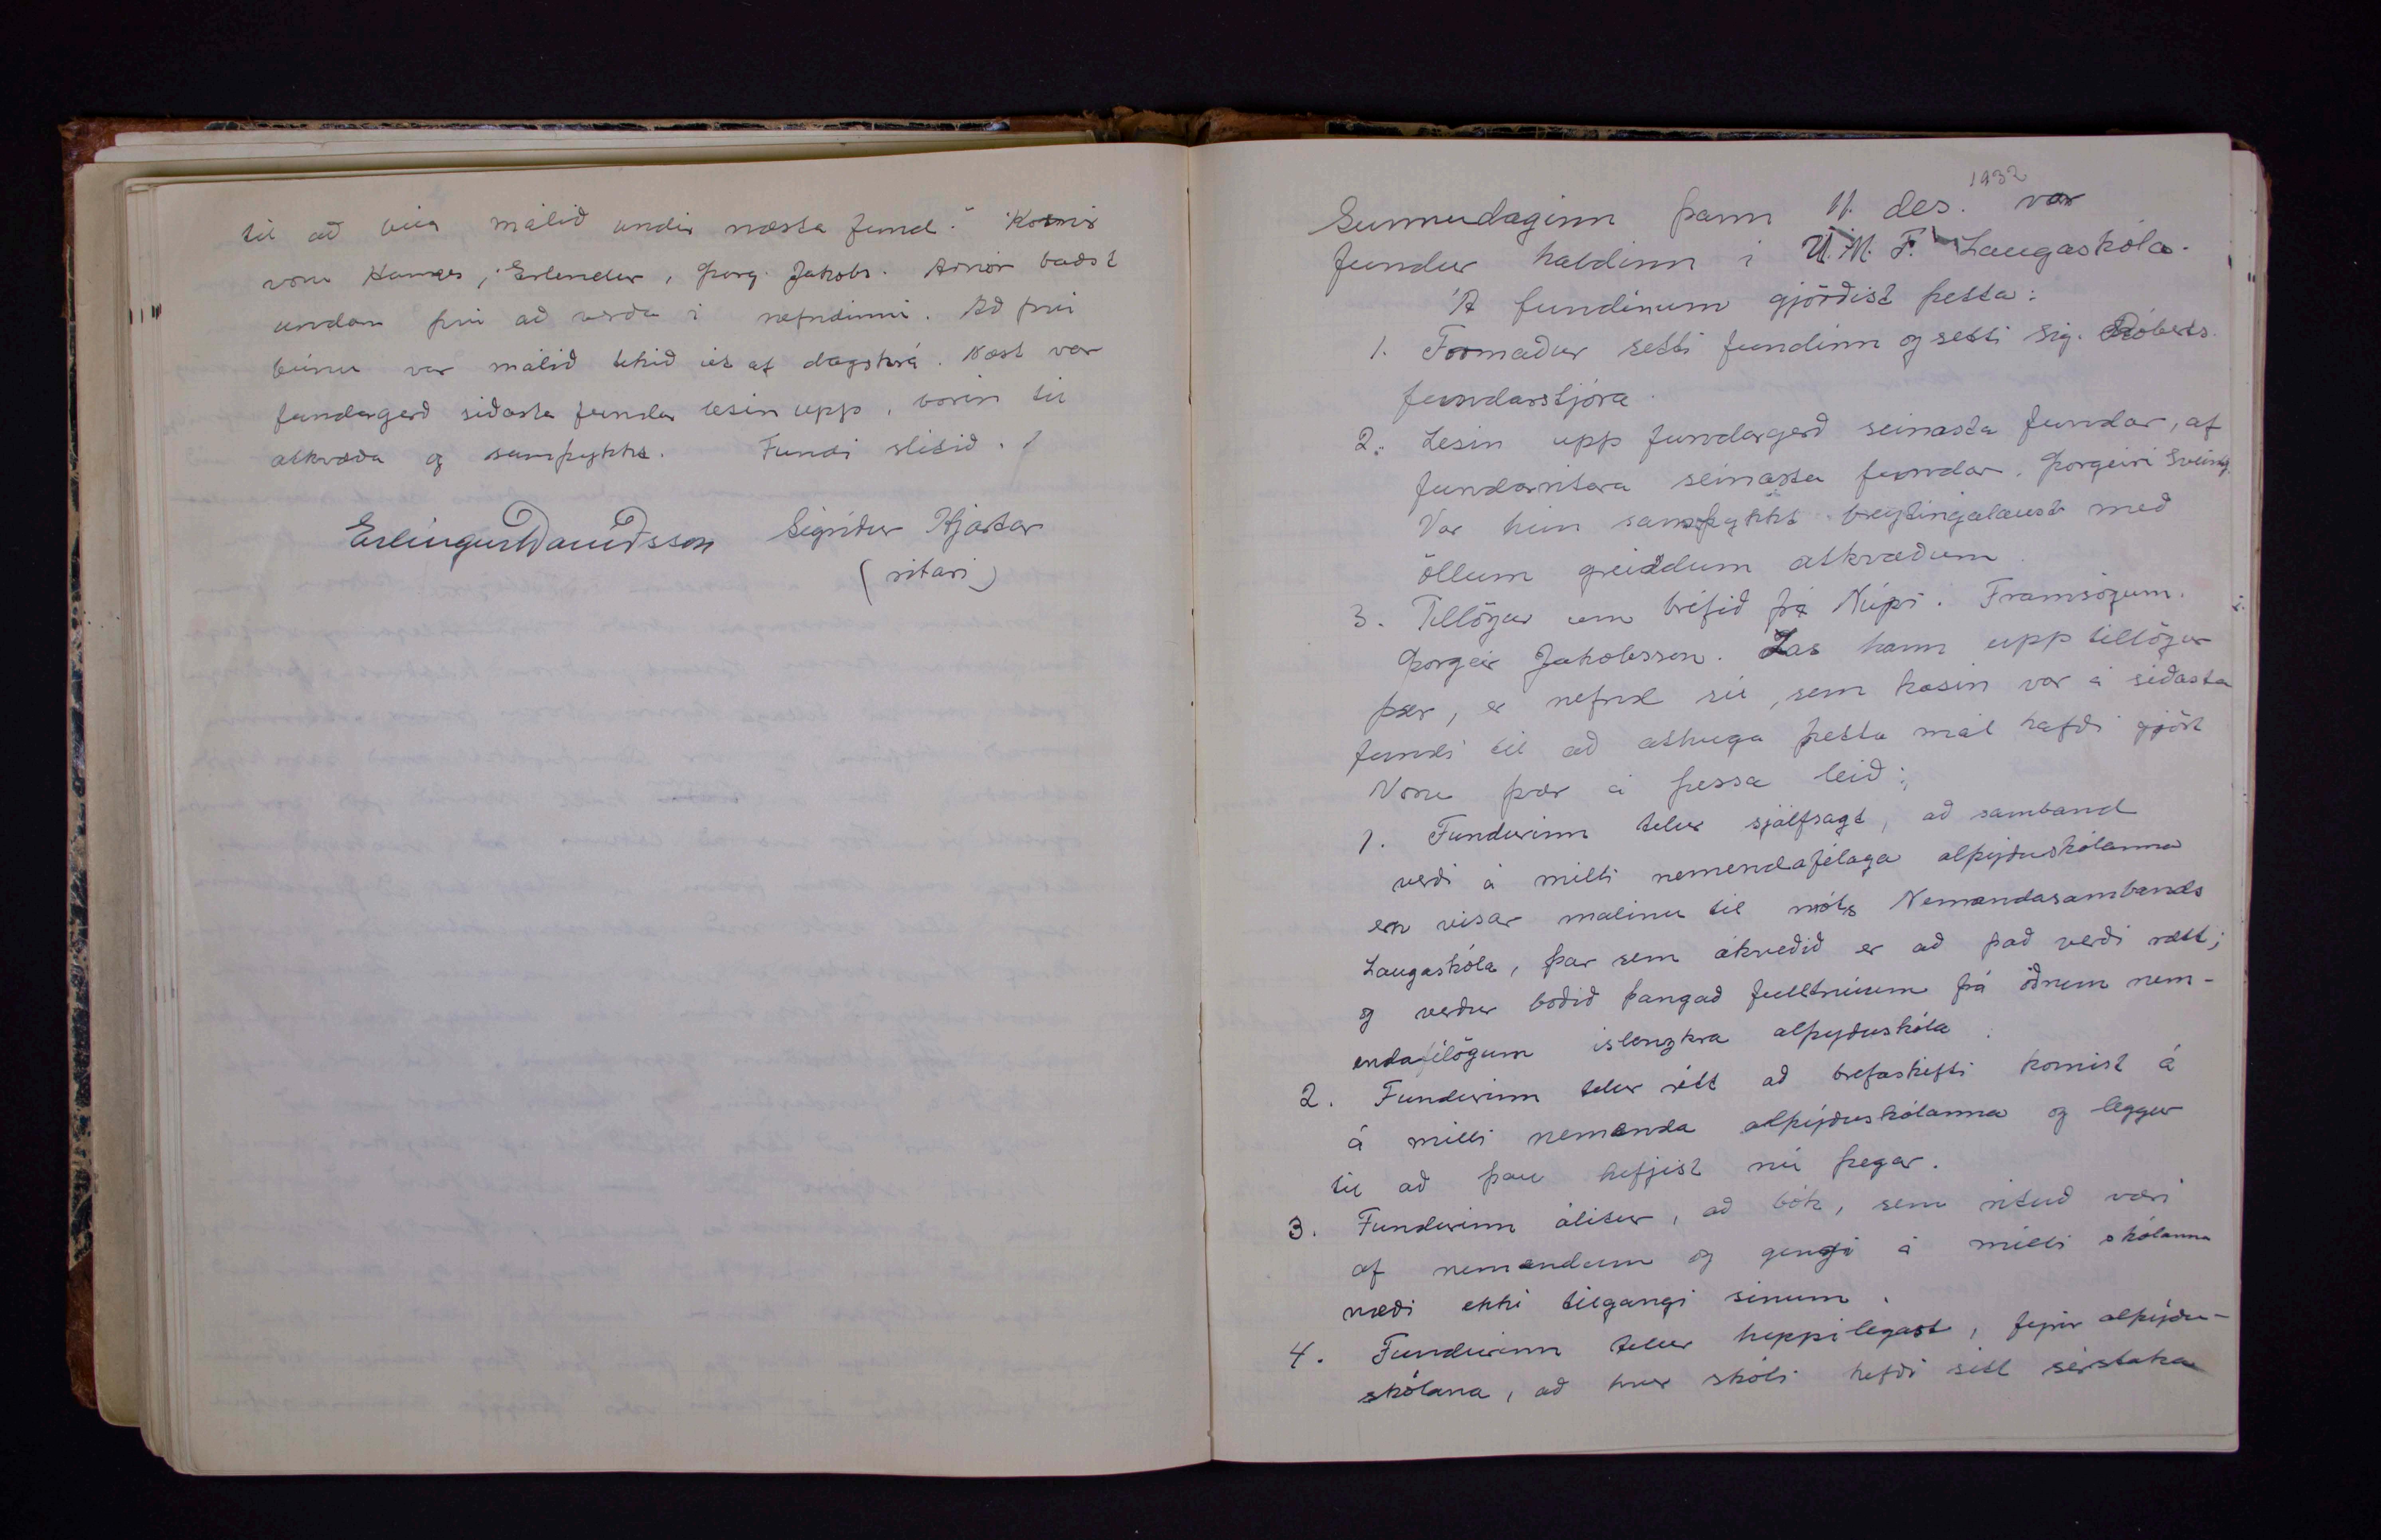 til að búa málið undir næsta fund." Kosnir
voru Hannes, Erlendur, Þorg. Jakobs. Arnór baðst
undan því að verða í nefndinni. Að því
búnu var málið tekið út af dagskrá. Næst var
fundargerð síðasta fundar lesin upp, borin til
atkvæða og samþykkt. Fundi slitið.
Erlingur Davíðsson Sigríður Hjartar
(ritari)
1932
Sunnudaginn þann 11. des. var
fundur haldinn í U.M.F. Laugaskóla.
Á fundinum gjörðist þetta:
1. Formaður setti fundinn og setti Sig. Róberts.
fundarstjóra.
2. Lesin upp fundargerð seinasta fundar, af
fundarritara seinasta fundar. Þorgeiri Sveinsg.
Var hún samþykkt breytingalaust með
öllum greiddum atkvæðum
3. Tillögur um bréfið frá Núpi. Framsögum.
Þorgeir Jakobsson. Las hann upp tillögur
þær, er nefnd sú, sem kosin var á síðasta
fundi til að athuga þetta mál hafði gjört
Voru þær á þessa leið:
1. Fundurinn telur sjálfsagt, að samband
verði á milli nemendafélaga alþýðuskólanna
en vísar málinu til móts Nemandasambands
Laugaskóla, þar sem ákveðið er að það verði rætt;
og verður boðið þangað fulltrúum frá öðrum nem-
endafélögum íslenzkra alþýðuskóla.
2. Fundurinn telur rétt að bréfaskifti komist á
á milli nemanda alþýðuskólanna og leggur
til að þau hefjist nú þegar.
3. Fundurinn álítur, að bók, sem rituð væri
af nemandum og gengi á milli skólanna
næði ekki tilgangi sínum.
4. Fundurinn telur heppilegast, fyrir alþýðu-
skólana, að hver skóli hefði sitt sérstaka